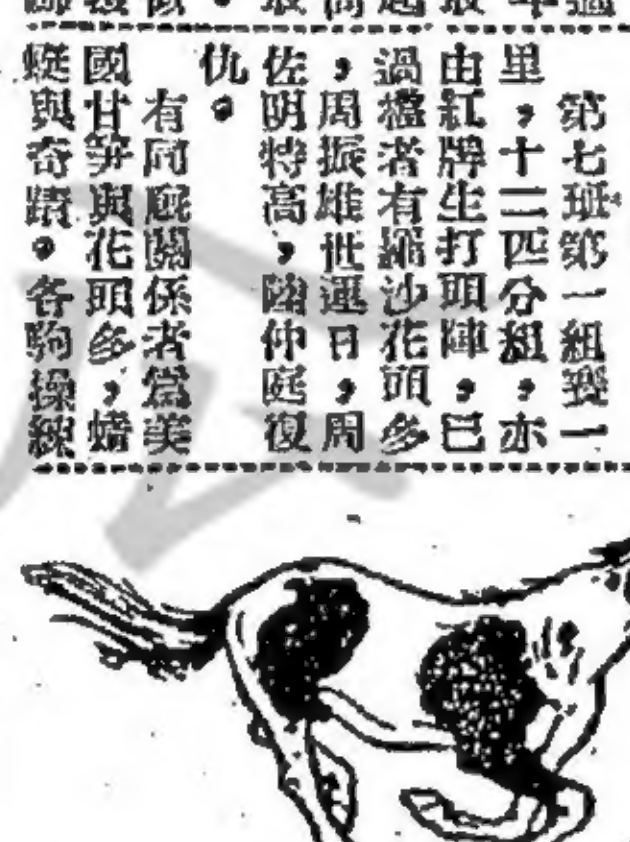 第七班第一組賽一
里，十二匹分組，亦
由紅牌生打頭陣，已
過檔者有羅沙花頭多
，周振雄世運日，周
佐明特高，陸仲庭復
仇。
有同廐關係者當美
國甘笋與花頭多，蜻
蜓與奇蹟。各駒操練